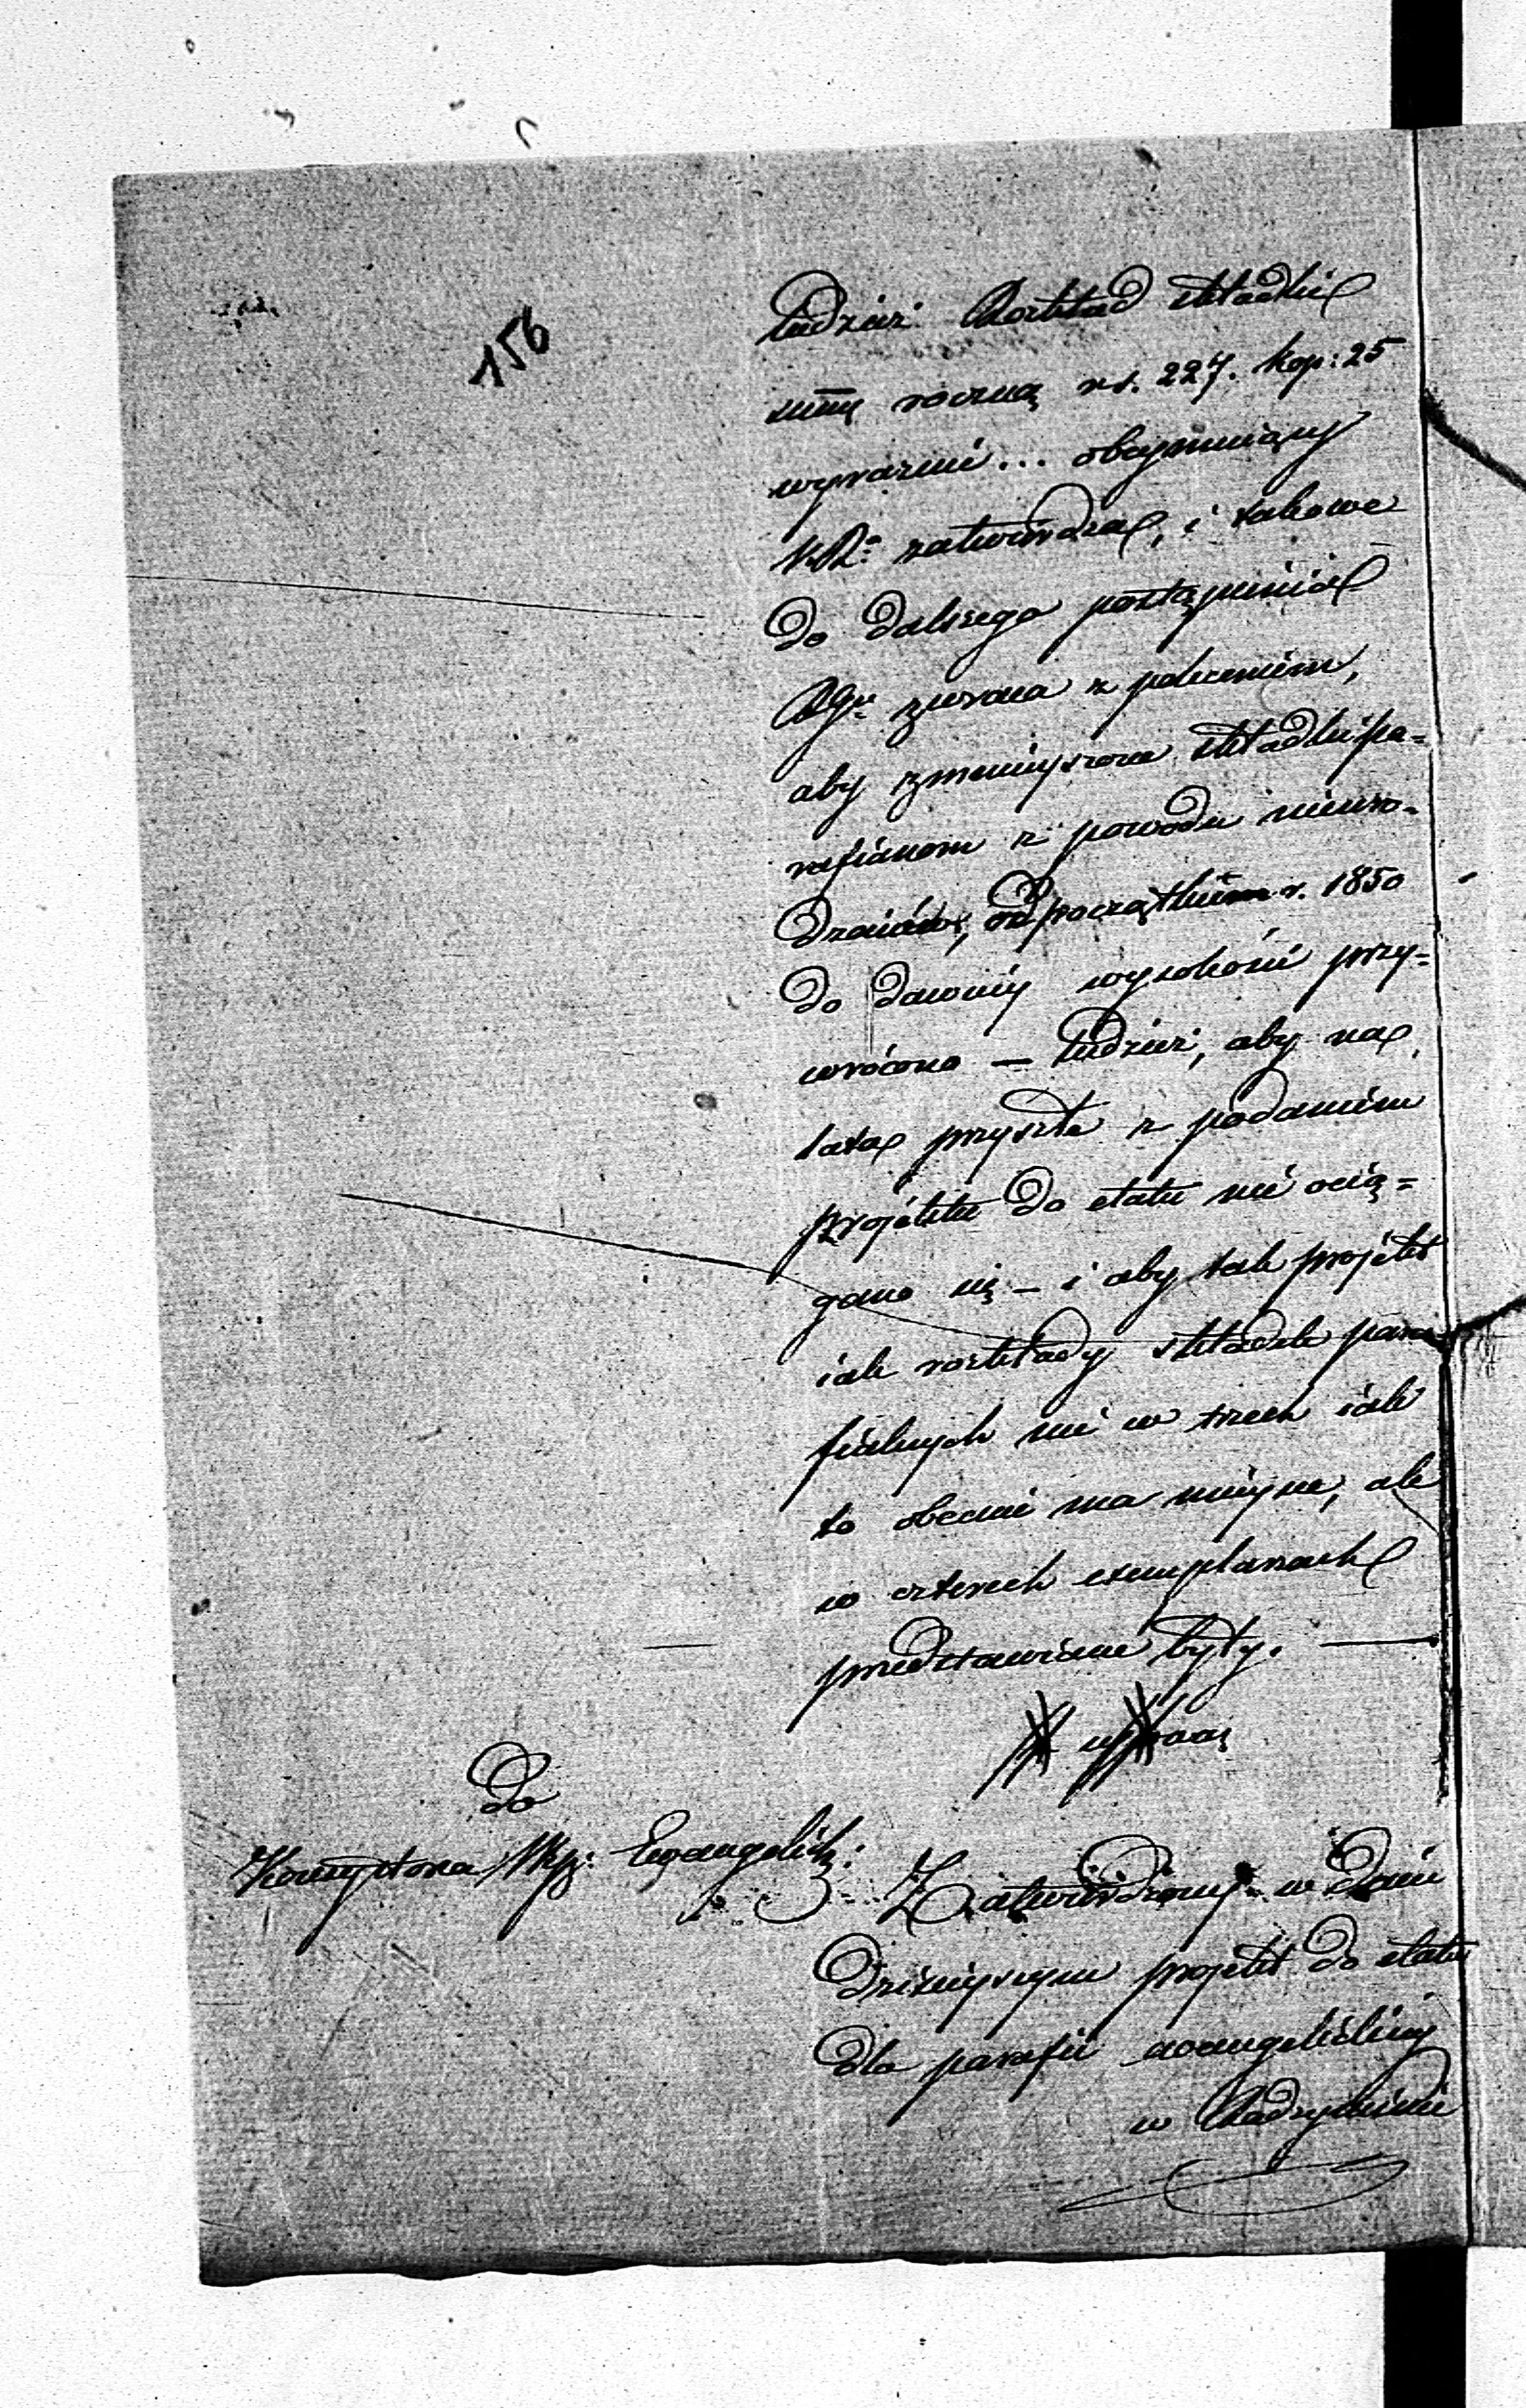 156
tudzież Rozkład składki
summę roczną rs. 227. kop: 25
wyraźnie... obejmujący
KR. zatwierdza, i takowe
do dalszego postąpienia
Rgu zwraca z poleceniem,
aby zmnieyszone składki pa=
rafianom z powodu nieuro=
dzaiów, od początku r. 1850
do dawney wysokości przy=
wrócono — tudzież, aby na
lata przyszłe z podaniem
projektu do etatu nie ocią=
gano się — i aby tak projekt
iak rozkłady składek para
fialnych nie w trzech iak
to obecnie ma mieysce, ale
w czterech exemplarzach
przedstawiane były. —
Do
Konsystorza Wyz: Ewangelick:
Zatwierdzony w dniu
dzisieyszym projekt do etatu
dla parafii ewangelickiey
w Radzyminie